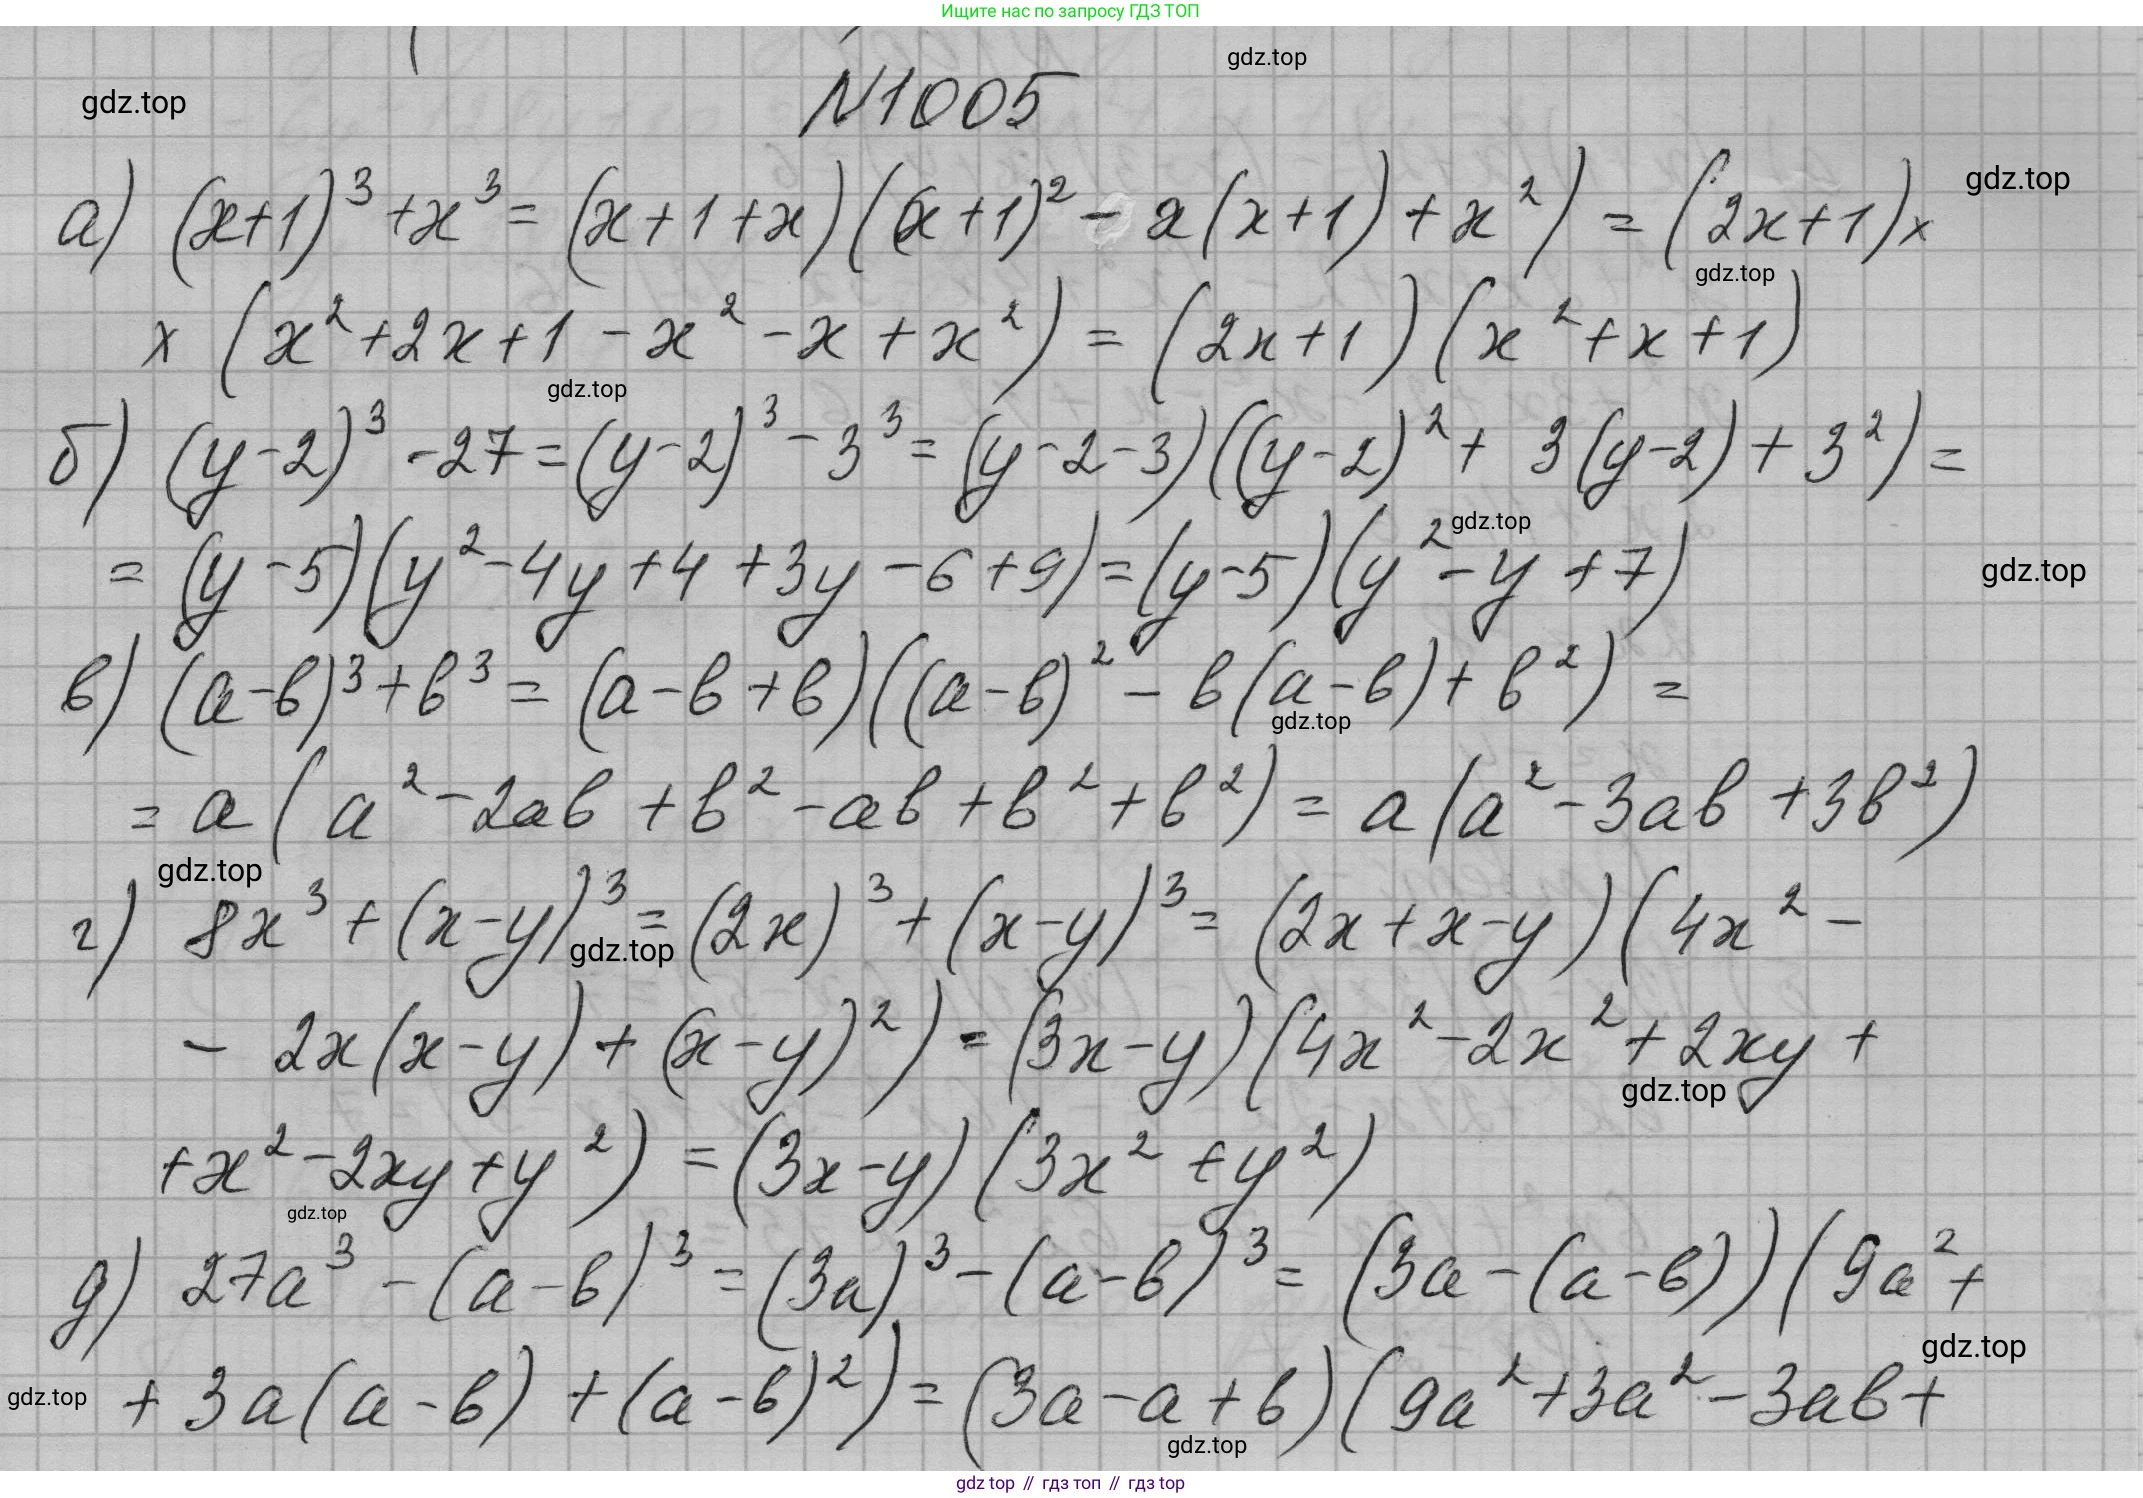 Ищите нас по запросу ГДЗ ТОП
gdz.top
gdz.top
№1005
а) (x+1)³+x³=(x+1+x)((x+1)²-x(x+1)+x²)=(2x+1)×
gdz.top
gdz.top
×(x²+2x+1-x²-x+x²)=(2x+1)(x²+x+1)
gdz.top
б) (y-2)³-27=(y-2)³-3³=(y-2-3)((y-2)²+3(y-2)+3²)=
gdz.top
=(y-5)(y²-4y+4+3y-6+9)=(y-5)(y²-y+7)
gdz.top
в) (a-b)³+b³=(a-b+b)((a-b)²-b(a-b)+b²)=
gdz.top
=a(a²-2ab+b²-ab+b²+b²)=a(a²-3ab+3b²)
gdz.top
г) 8x³+(x-y)³=(2x)³+(x-y)³=(2x+x-y)(4x²-
gdz.top
-2x(x-y)+(x-y)²)=(3x-y)(4x²-2x²+2xy+
gdz.top
+x²-2xy+y²)=(3x-y)(3x²+y²)
gdz.top
д) 27a³-(a-b)³=(3a)³-(a-b)³=(3a-(a-b))(9a²+
gdz.top
gdz.top
+3a(a-b)+(a-b)²)=(3a-a+b)(9a²+3a²-3ab+
gdz.top
gdz top // гдз топ // gdz top